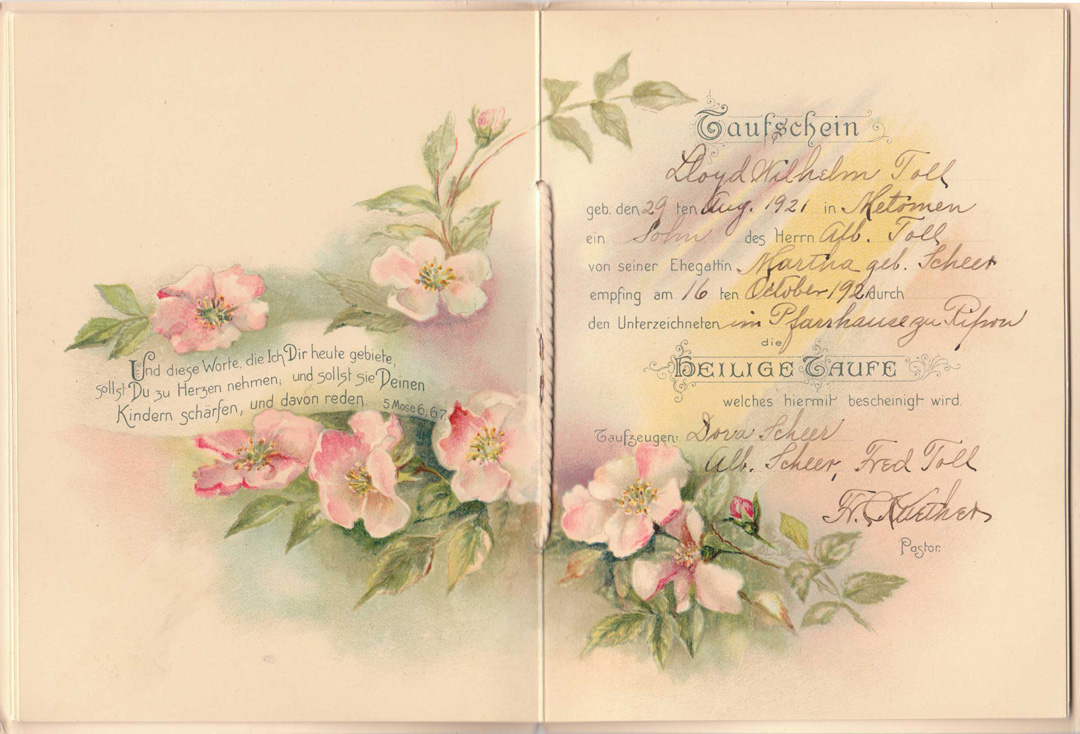 Und diese Worte, die Ich Dir heute gebiete,
sollst Du zu Herzen nehmen, und sollst sie Deinen
Kindern schärfen, und davon reden. 5 Mose 6, 6.7.
Taufschein
Lloyd Wilhelm Toll
geb. den 29 ten Aug. 1921 in Metomen
ein Sohn des Herrn Alb. Toll
von seiner Ehegattin Martha geb. Scheer
empfing am 16 ten October 1921 durch
den Unterzeichneten im Pfarrhause zu Ripon
die
HEILIGE TAUFE
welches hiermit bescheinigt wird.
Taufzeugen: Dora Scheer
Alb. Scheer, Fred Toll
Pastor.